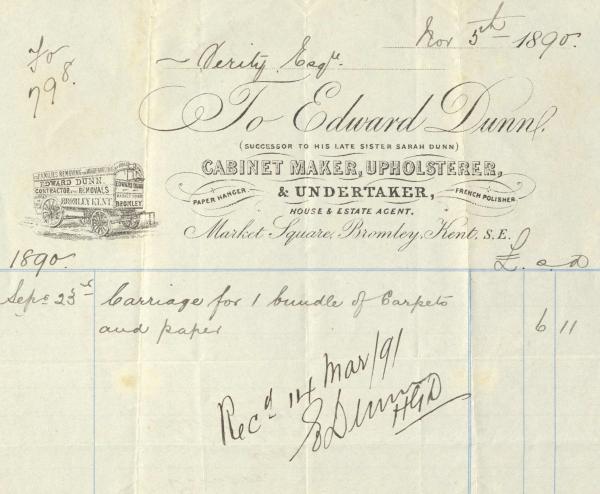 Nov 5th 1890.
Fo
798.
Verity Esqre.
To Edward Dunn,
(SUCCESSOR TO HIS LATE SISTER SARAH DUNN)
CABINET MAKER, UPHOLSTERER,
PAPER HANGER & UNDERTAKER, FRENCH POLISHER
HOUSE & ESTATE AGENT.
Market Square, Bromley, Kent, S.E.
EDWARD DUNN
CONTRACTOR FOR REMOVALS
BROMLEY KENT
EDWARD DUNN
BROMLEY
1890. £. s. d
Sept 23rd Carriage for 1 bundle of Carpets
and paper 6 11
Recd 14 Mar/91
E Dunn
HGD